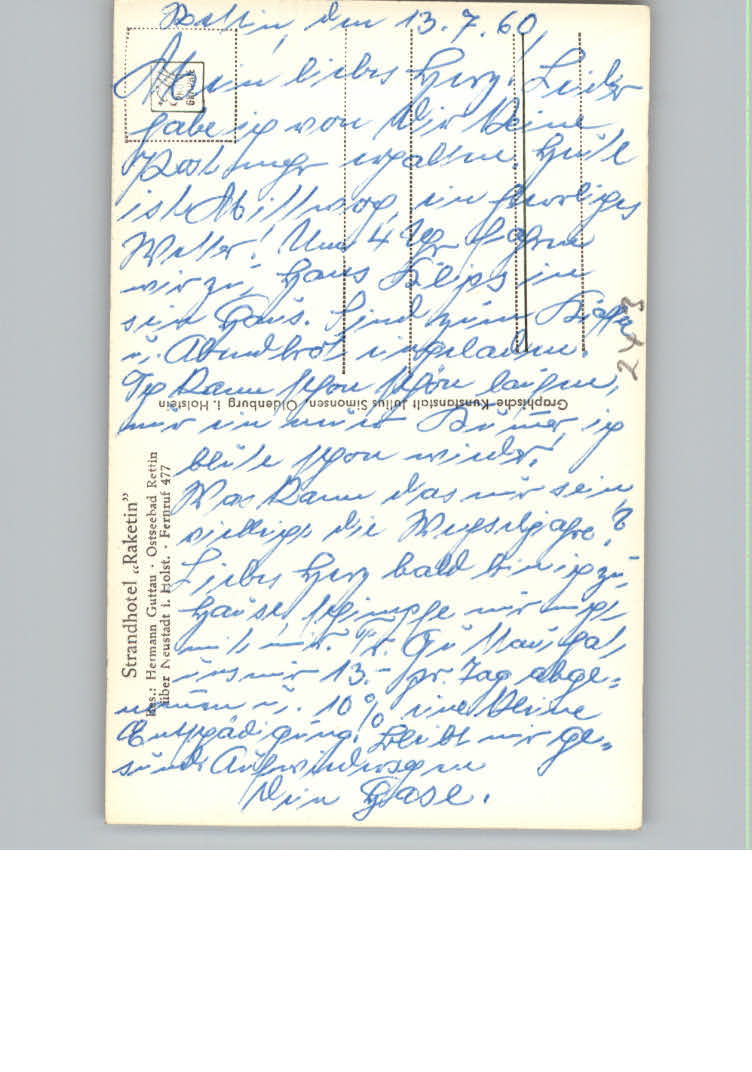 Rettin, den 13.7.60
Mein liebes Herz! Leider
habe ich von Dir keine
Post mehr erhalten. Heute
ist Mittwoch, ein herrliches
Wetter! Um 4 Uhr fahren
wir zu Hans in
sein Haus. Sind zum Kaffee
u. Abendbrot eingeladen.
Ich kann schon schön laufen,
nur ein neuer Kummer, ich
blute schon wieder!
Was kann das nur sein,
die Wechseljahre?
Liebes Herz bald bin ich zu-
hause, schimpfe nur nicht
mit mir. Fr. hat
uns nur 13.- pr. Tag abge=
nommen u. 10% eine kleine
Entschädigung. Bleibt mir ge=
sund. Aufwiedersehen
Dein Hase.
243
Strandhotel „Raketin”
Bes.: Hermann Guttau · Ostseebad Rettin
über Neustadt i. Holst. · Fernruf 477
Graphische Kunstanstalt Julius Simonsen, Oldenburg i. Holstein